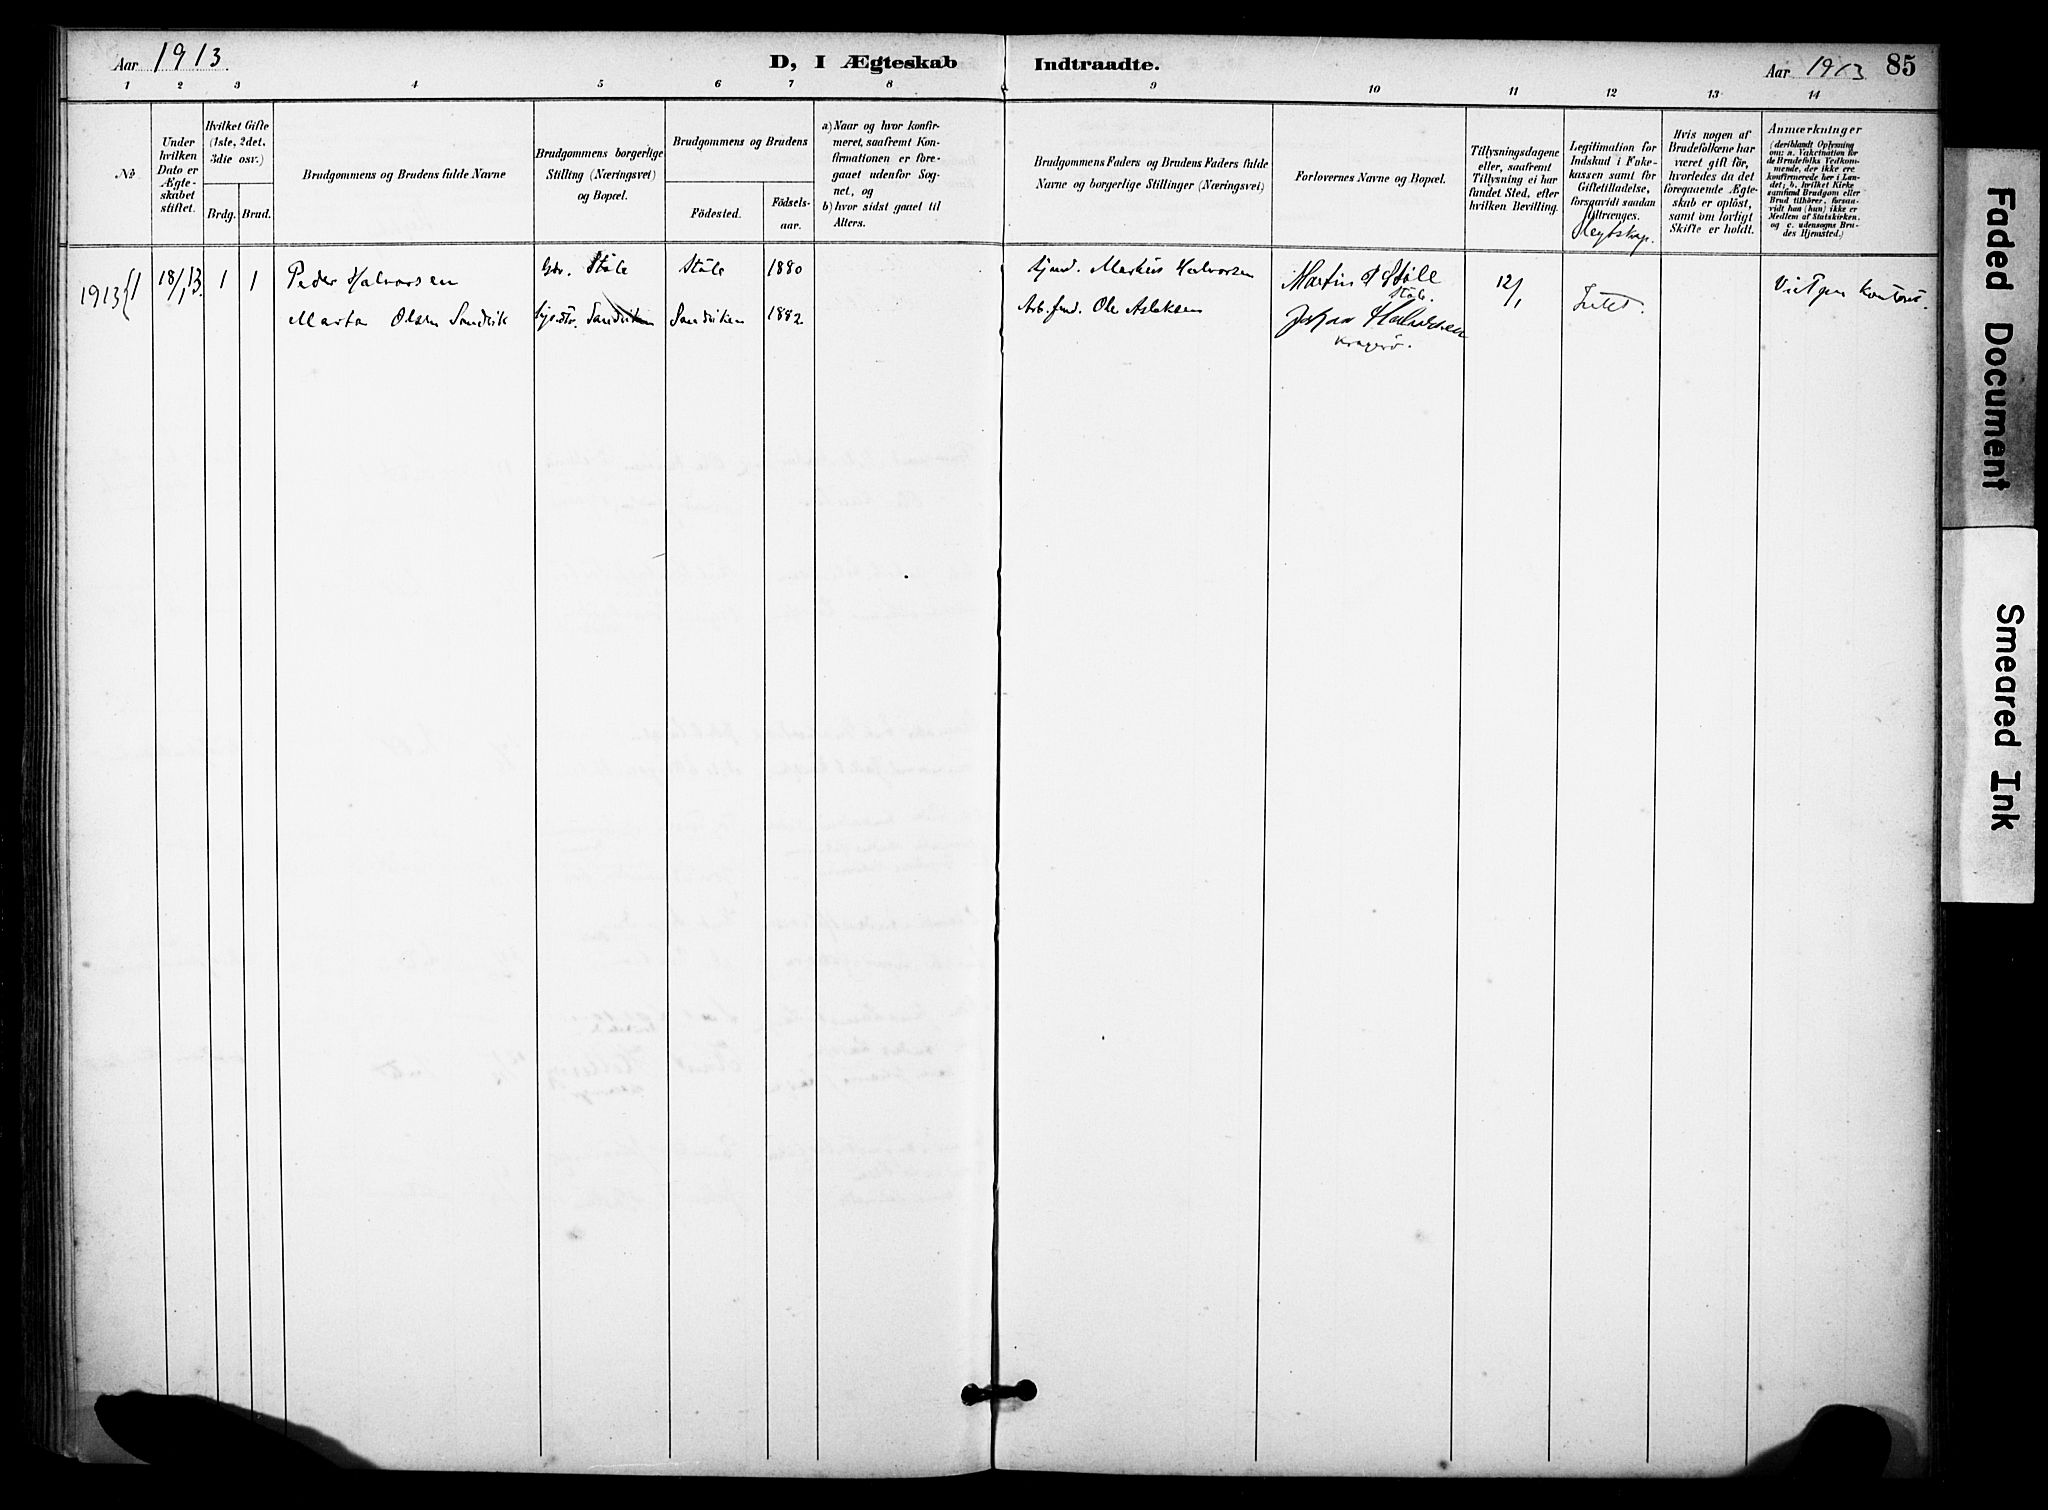 Aar 1913
D, I Ægteskab Indtraadte.
Aar 1913 85
1 2 3 4 5 6 7 8 9 10 11 12 13 14
No.
Under hvilken Dato er Ægteskabet stiftet.
Hvilket Gifte (1ste, 2det, 3die osv.)
Brdg. Brud.
Brudgommens og Brudens fulde Navne
Brudgommens borgerlige Stilling (Næringsvei) og Bopæl.
Brudgommens og Brudens
Fødested. Fødselsaar.
a) Naar og hvor konfirmeret, saafremt Konfirmationen er foregaaet udenfor Sognet, og
b) hvor sidst gaaet til Alters.
Brudgommens Faders og Brudens Faders fulde Navne og borgerlige Stillinger (Næringsvei)
Forlovernes Navne og Bopæl.
Tillysningsdagene eller, saafremt Tillysning ei har fundet Sted, efter hvilken Bevilling.
Legitimation for Indskud i Enkekassen samt for Giftetilladelse, forsaavidt saadan tiltrænges.
Hvis nogen af Brudefolkene har været gift før, hvorledes da det foregaaende Ægteskab er opløst, samt om lovligt Skifte er holdt.
Anmærkninger (deriblandt Oplysning om: a. Vakcination for de Brudefolks Vedkommende, der ikke ere konfirmerede her i Landet; b. hvilket Kirkesamfund Brudgom eller Brud tilhører, forsaavidt han (hun) ikke er Medlem af Statskirken, og c. udensogns Brudes Hjemsted.)
1913 { 1 18/1 13. 1 1 Peder Halvorsen Gbr. Støle Støle 1880 Markus Halvorsen Martin Støle 12/1
Støle.
Olsen Sandvik Sandviken Sandviken 1882 Ole Aslaksen Halvorsen Intet.
Kragerø.
Faded Document
Smeared Ink